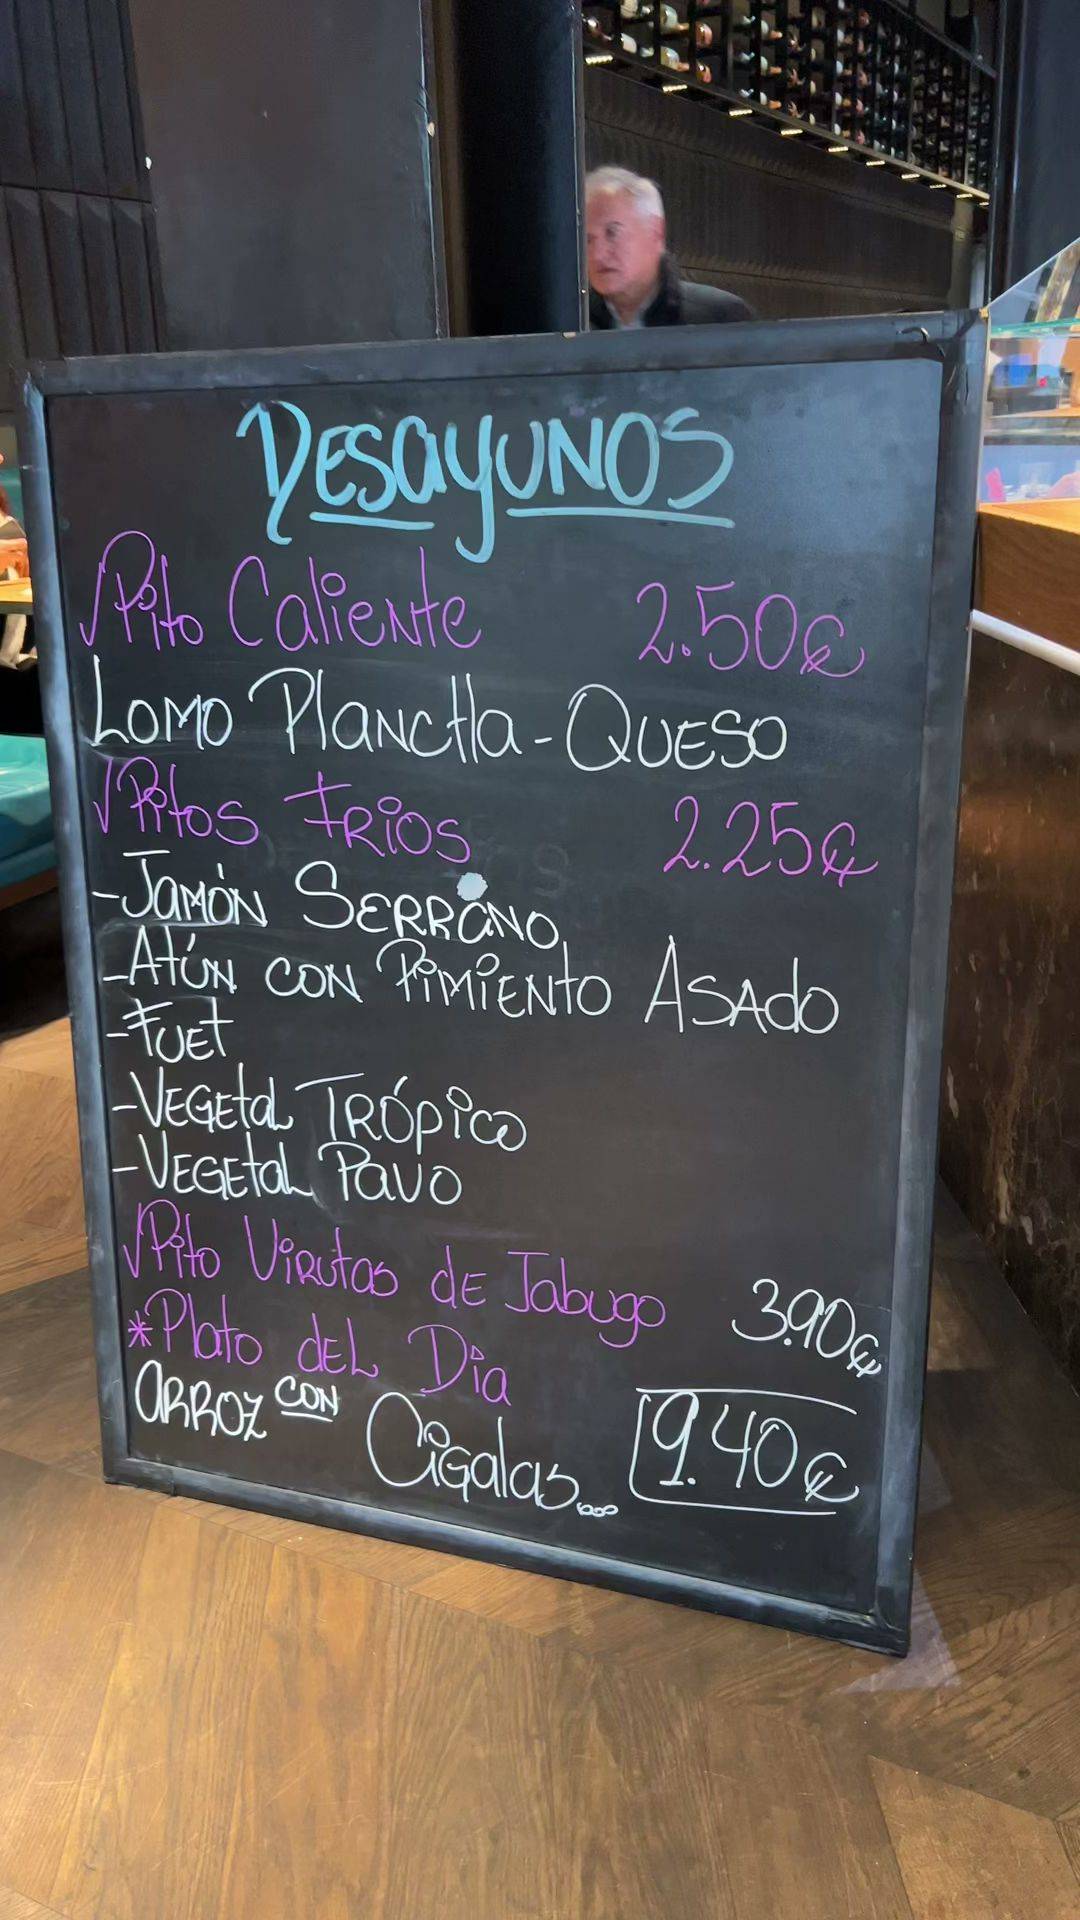 DESAYUNOS
√Pito Caliente 2.50€
LOMO PlaNCHa-QUESO
√Pitos FRIOS 2.25€
-JaMóN SERRaNO
-AtúN CON PIMIENtO ASAdO
-FUEt
-VEGEtal TRÓPico
-VEGEtal PaVO
√Pito VIRUtas dE Jabugo 3.90€
*Plato dEL Día
aRROZ CON
CiGalas... 9.40€